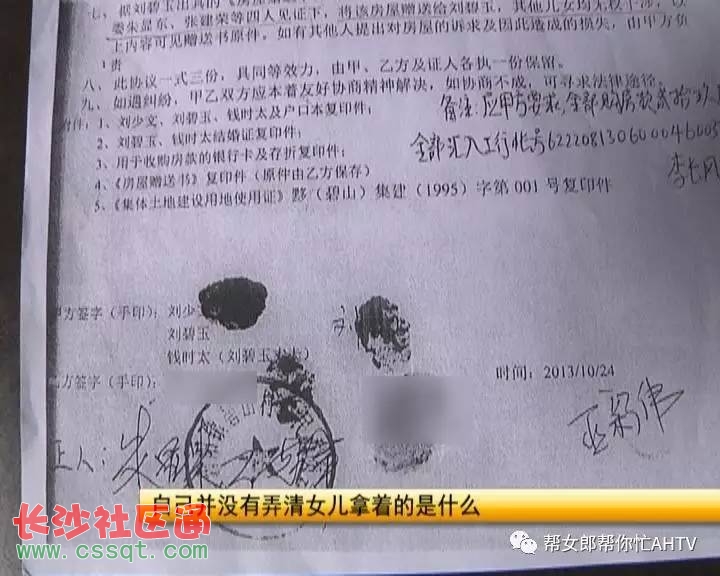 七、据刘碧玉出具的《房屋赠送
委朱显东、张建荣等四人见证下，将该房屋赠送给刘碧玉，其他儿女均无权干涉，以
上内容可见赠送书原件。如有其他人提出对房屋的诉求及因此造成的损失，由甲方负
责
八、此协议一式三份，具同等效力，由甲、乙方及证人各执一份保留。
九、如遇纠纷，甲乙双方应本着友好协商精神解决，如协商不成，可寻求法律途径。
附件：1、刘少文、刘碧玉、钱时太及户口本复印件；
2、刘碧玉、钱时太结婚证复印件；
3、用于收购房款的银行卡及存折复印件；
4、《房屋赠送书》复印件（原件由乙方保存）
5、《集体土地建设用地使用证》黟（碧山）集建（1995）字第 001 号复印件
备注：应甲方要求，全部购房款
全部汇入工行帐号622208130600046005
甲方签字（手印）：刘少
刘碧玉
钱时太（刘碧玉丈夫）
乙方签字（手印）：
时间：2013/10/24
证人：朱
自己并没有弄清女儿拿着的是什么
长沙社区通
www.cssqt.com
帮女郎帮你忙AHTV